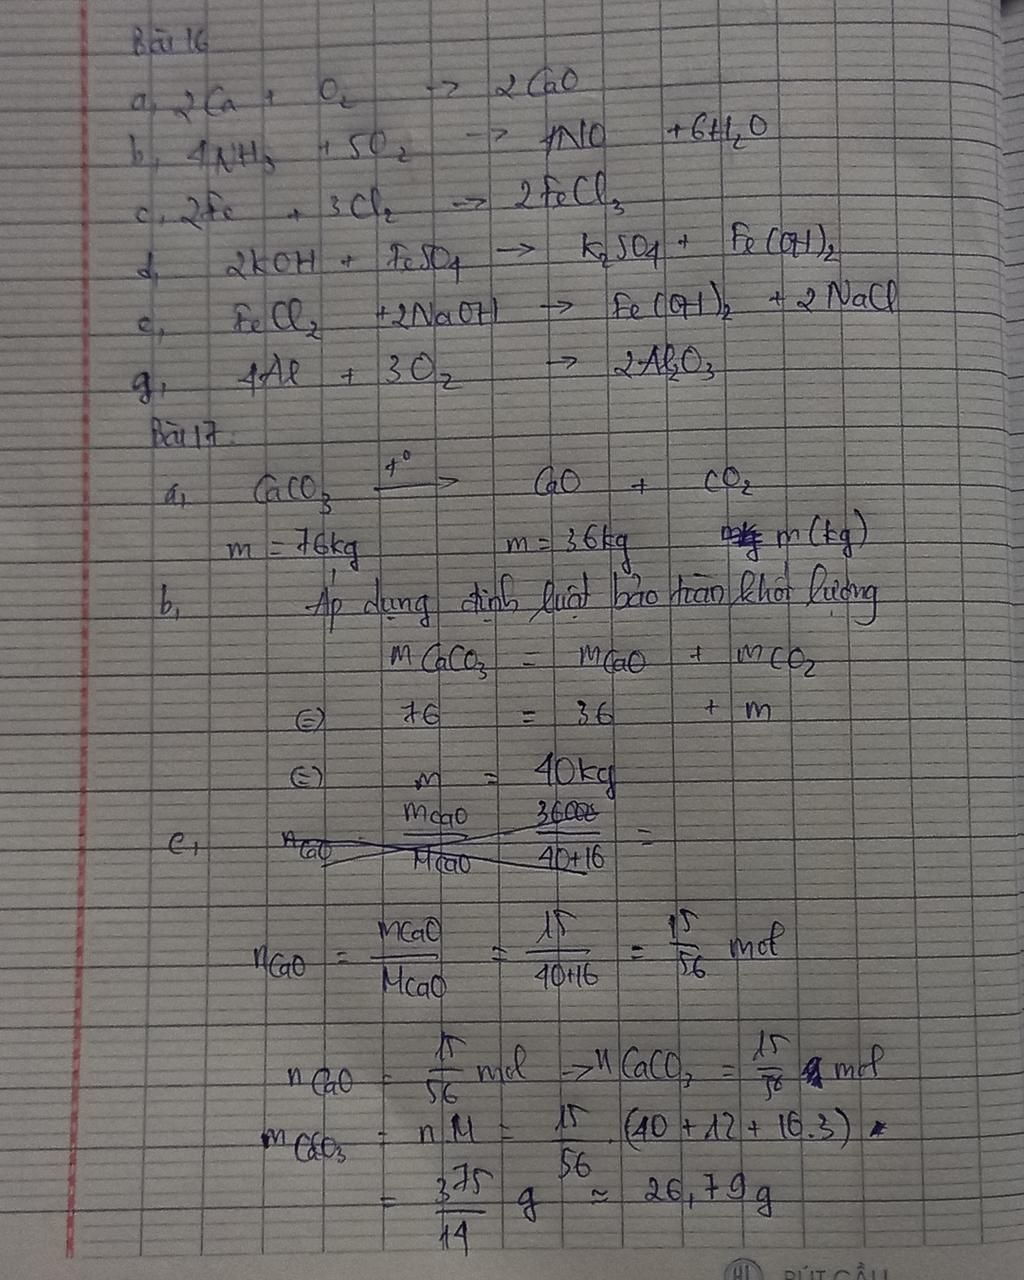 Bài 16
a, 2Ca + O₂ → 2CaO
b, 4NH₃ + 5O₂ → 4NO + 6H₂O
c, 2Fe + 3Cl₂ → 2FeCl₃
d, 2KOH + FeSO₄ → K₂SO₄ + Fe(OH)₂
e, FeCl₂ + 2NaOH → Fe(OH)₂ + 2NaCl
g, 4Al + 3O₂ → 2Al₂O₃
Bài 17
a, CaCO₃ —t°→ CaO + CO₂
m = 76kg m = 36kg m(kg)
b, Áp dụng định luật bảo toàn khối lượng
mCaCO₃ = mCaO + mCO₂
⇔ 76 = 36 + m
⇔ m = 40kg
c, nCaO = mCaO/MCaO 36000/40+16 =
nCaO = mCaO/MCaO = 15/40+16 = 15/56 mol
nCaO = 15/56 mol → nCaCO₃ = 15/56 mol
mCaCO₃ = n.M = 15/56 . (40 + 12 + 16.3)
= 375/14 g ≈ 26,79g
BÚT CẦU